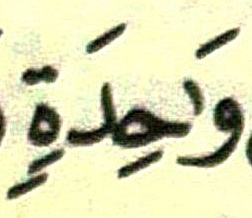 وَٰحِدَةٍ